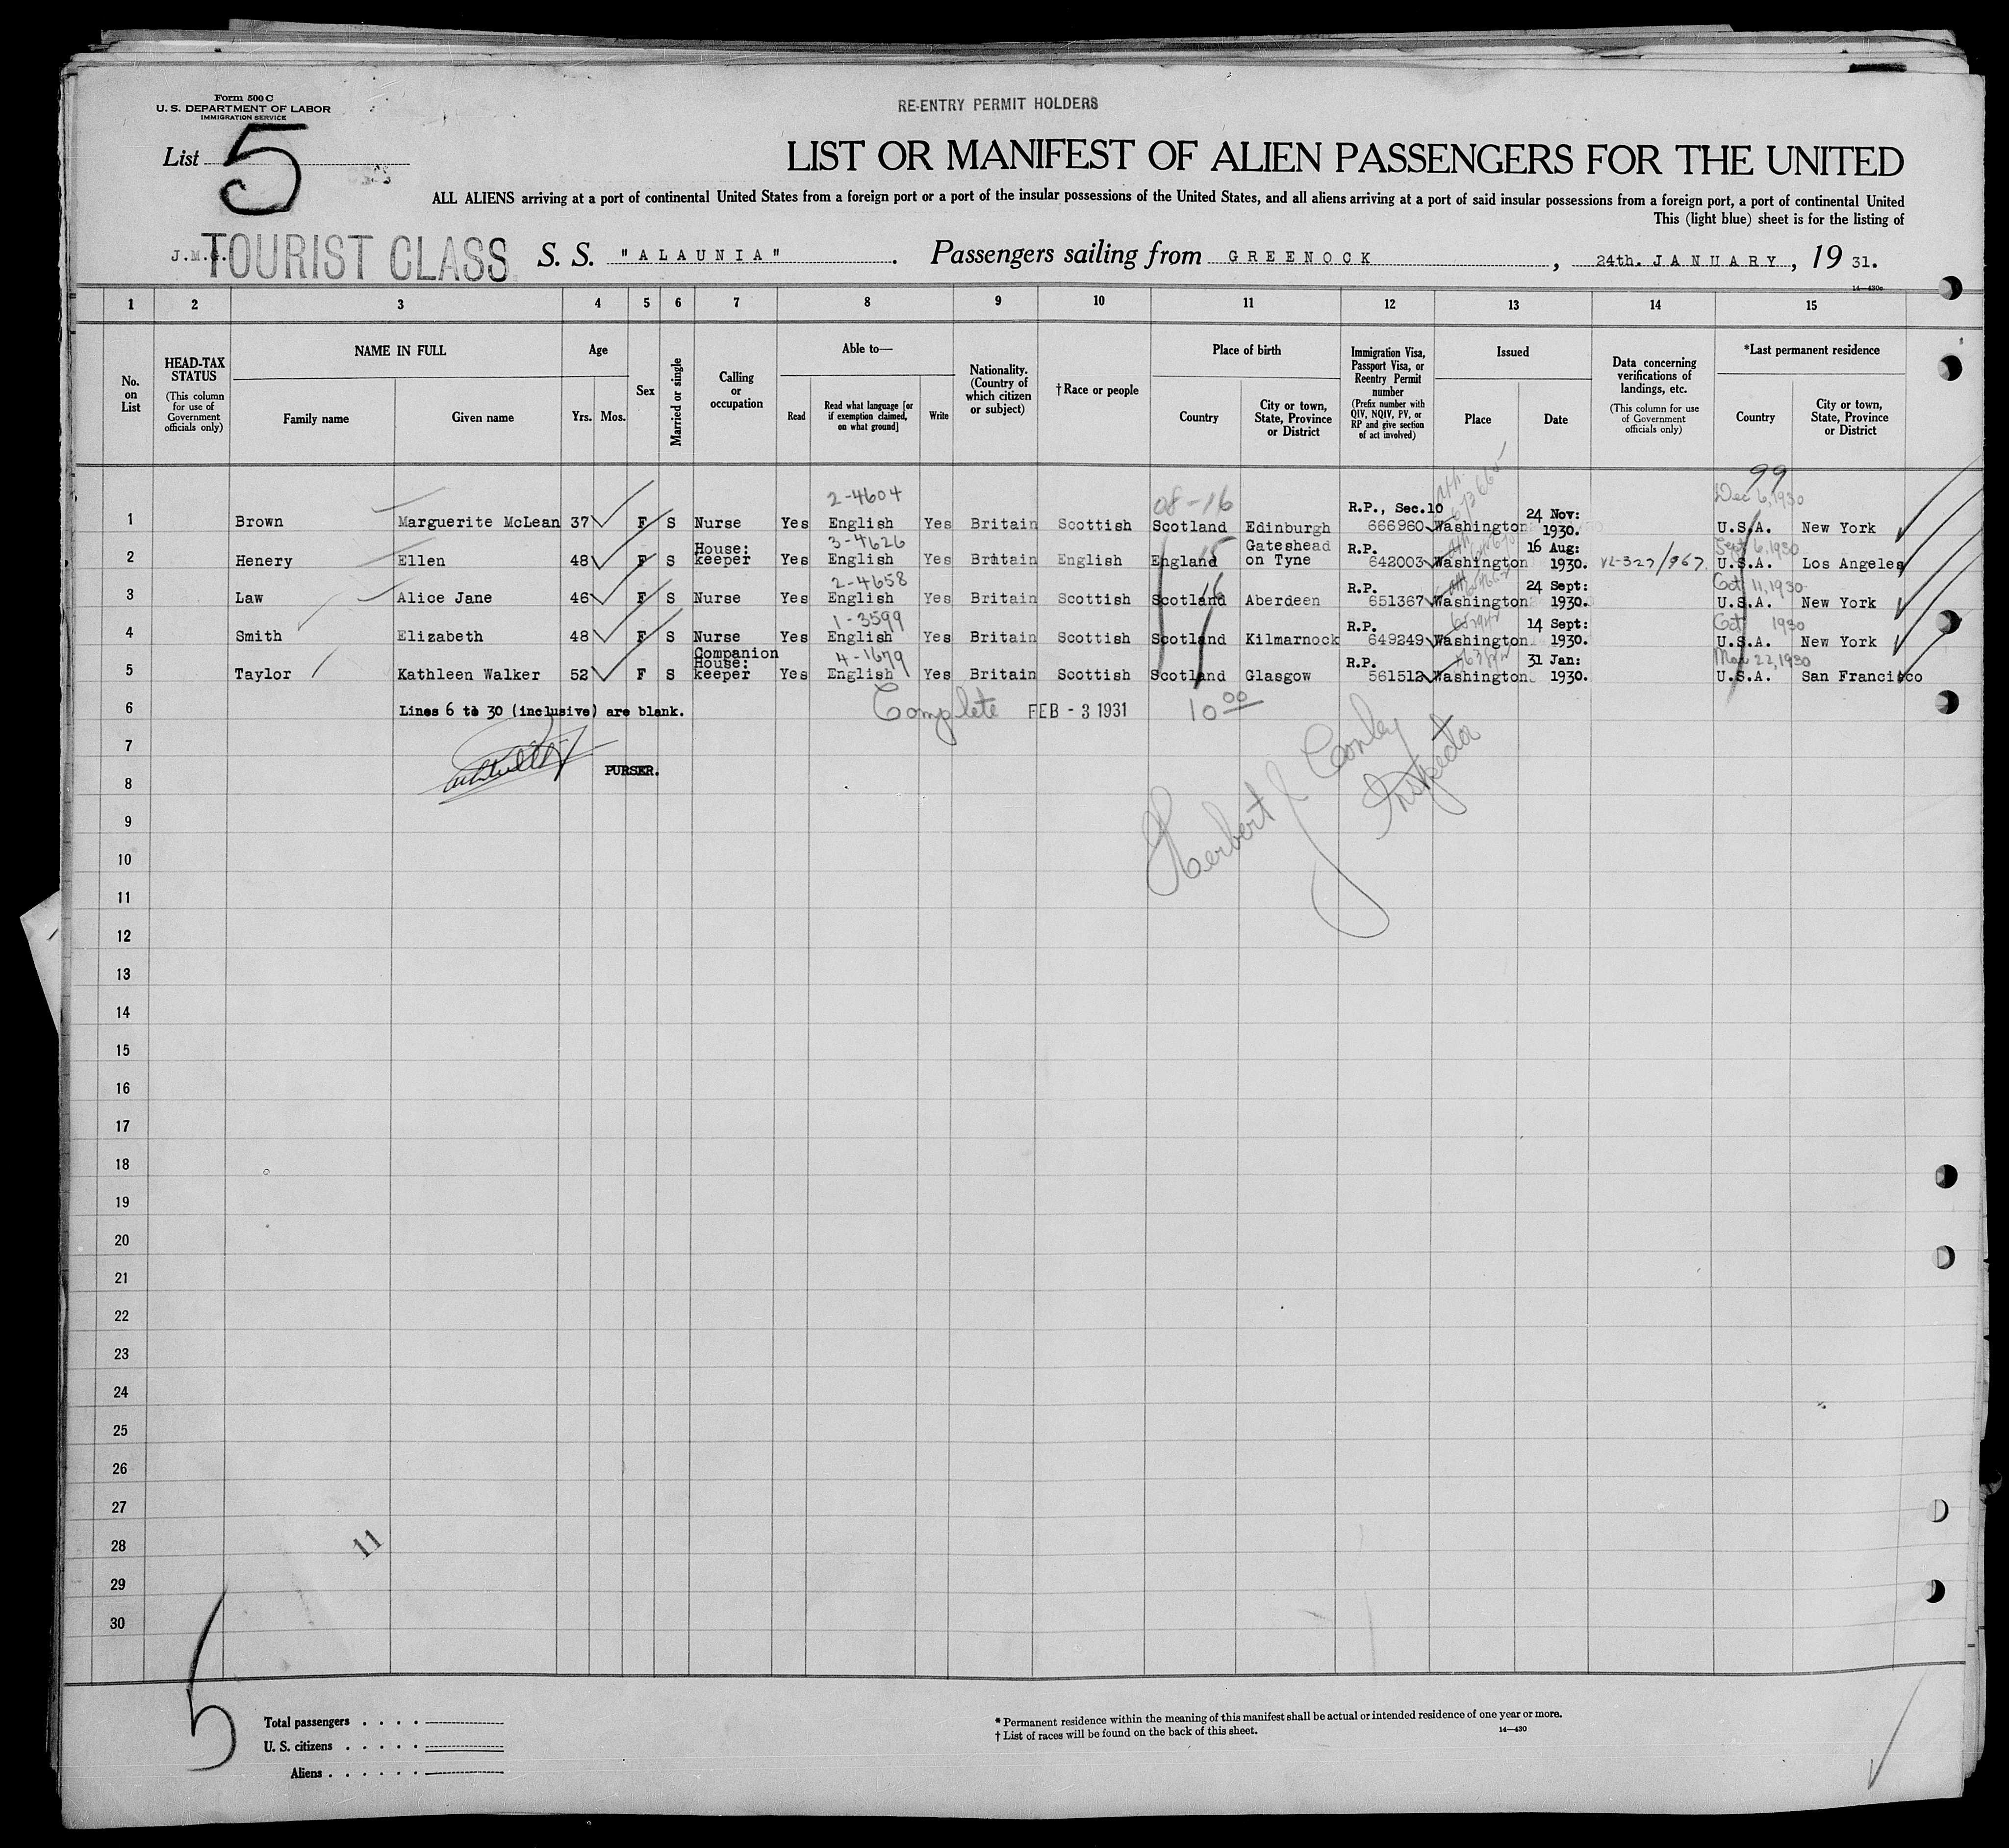 Form 500 C
U. S. DEPARTMENT OF LABOR
IMMIGRATION SERVICE
RE-ENTRY PERMIT HOLDERS
List 5
LIST OR MANIFEST OF ALIEN PASSENGERS FOR THE UNITED
ALL ALIENS arriving at a port of continental United States from a foreign port or a port of the insular possessions of the United States, and all aliens arriving at a port of said insular possessions from a foreign port, a port of continental United
This (light blue) sheet is for the listing of
J.M.G. TOURIST CLASS S. S. "ALAUNIA". Passengers sailing from GREENOCK, 24th. JANUARY, 19 31.
14—430c
1 2 3 4 5 6 7 8 9 10 11 12 13 14 15
No. on List
HEAD-TAX STATUS (This column for use of Government officials only)
NAME IN FULL
Family name Given name
Age
Yrs. Mos.
Sex
Married or single
Calling or occupation
Able to—
Read Read what language [or if exemption claimed, on what ground] Write
Nationality. (Country of which citizen or subject)
†Race or people
Place of birth
Country City or town, State, Province or District
Immigration Visa, Passport Visa, or Reentry Permit number (Prefix number with QIV, NQIV, PV, or RP and give section of act involved)
Issued
Place Date
Data concerning verifications of landings, etc. (This column for use of Government officials only)
*Last permanent residence
Country City or town, State, Province or District
99
2-4604 08-16 Dec 6, 1930
1 Brown Marguerite McLean 37 F S Nurse Yes English Yes Britain Scottish Scotland Edinburgh R.P., Sec.10 666960 Washington 24 Nov: 1930. U.S.A. New York
3-4626 15 Sept 6, 1930
2 Henery Ellen 48 F S House: keeper Yes English Yes Britain English England Gateshead on Tyne R.P. 642003 Washington 16 Aug: 1930. VL-327/967 U.S.A. Los Angeles
2-4658 16 Oct 11, 1930
3 Law Alice Jane 46 F S Nurse Yes English Yes Britain Scottish Scotland Aberdeen R.P. 651367 Washington 24 Sept: 1930. U.S.A. New York
1-3599 Oct 1930
4 Smith Elizabeth 48 F S Nurse Yes English Yes Britain Scottish Scotland Kilmarnock R.P. 649249 Washington 14 Sept: 1930. U.S.A. New York
4-1679 Mar 22, 1930
5 Taylor Kathleen Walker 52 F S Companion House: keeper Yes English Yes Britain Scottish Scotland Glasgow R.P. 561512 Washington 31 Jan: 1930. U.S.A. San Francisco
6 Lines 6 to 30 (inclusive) are blank. Complete FEB - 3 1931 10 00
7
PURSER.
Herbert J Conley
Inspector
8
9
10
11
12
13
14
15
16
17
18
19
20
21
22
23
24
25
26
27
28
11
29
30
5
Total passengers . . . .
U. S. citizens . . . . .
Aliens . . . . . .
* Permanent residence within the meaning of this manifest shall be actual or intended residence of one year or more.
† List of races will be found on the back of this sheet.
14—430